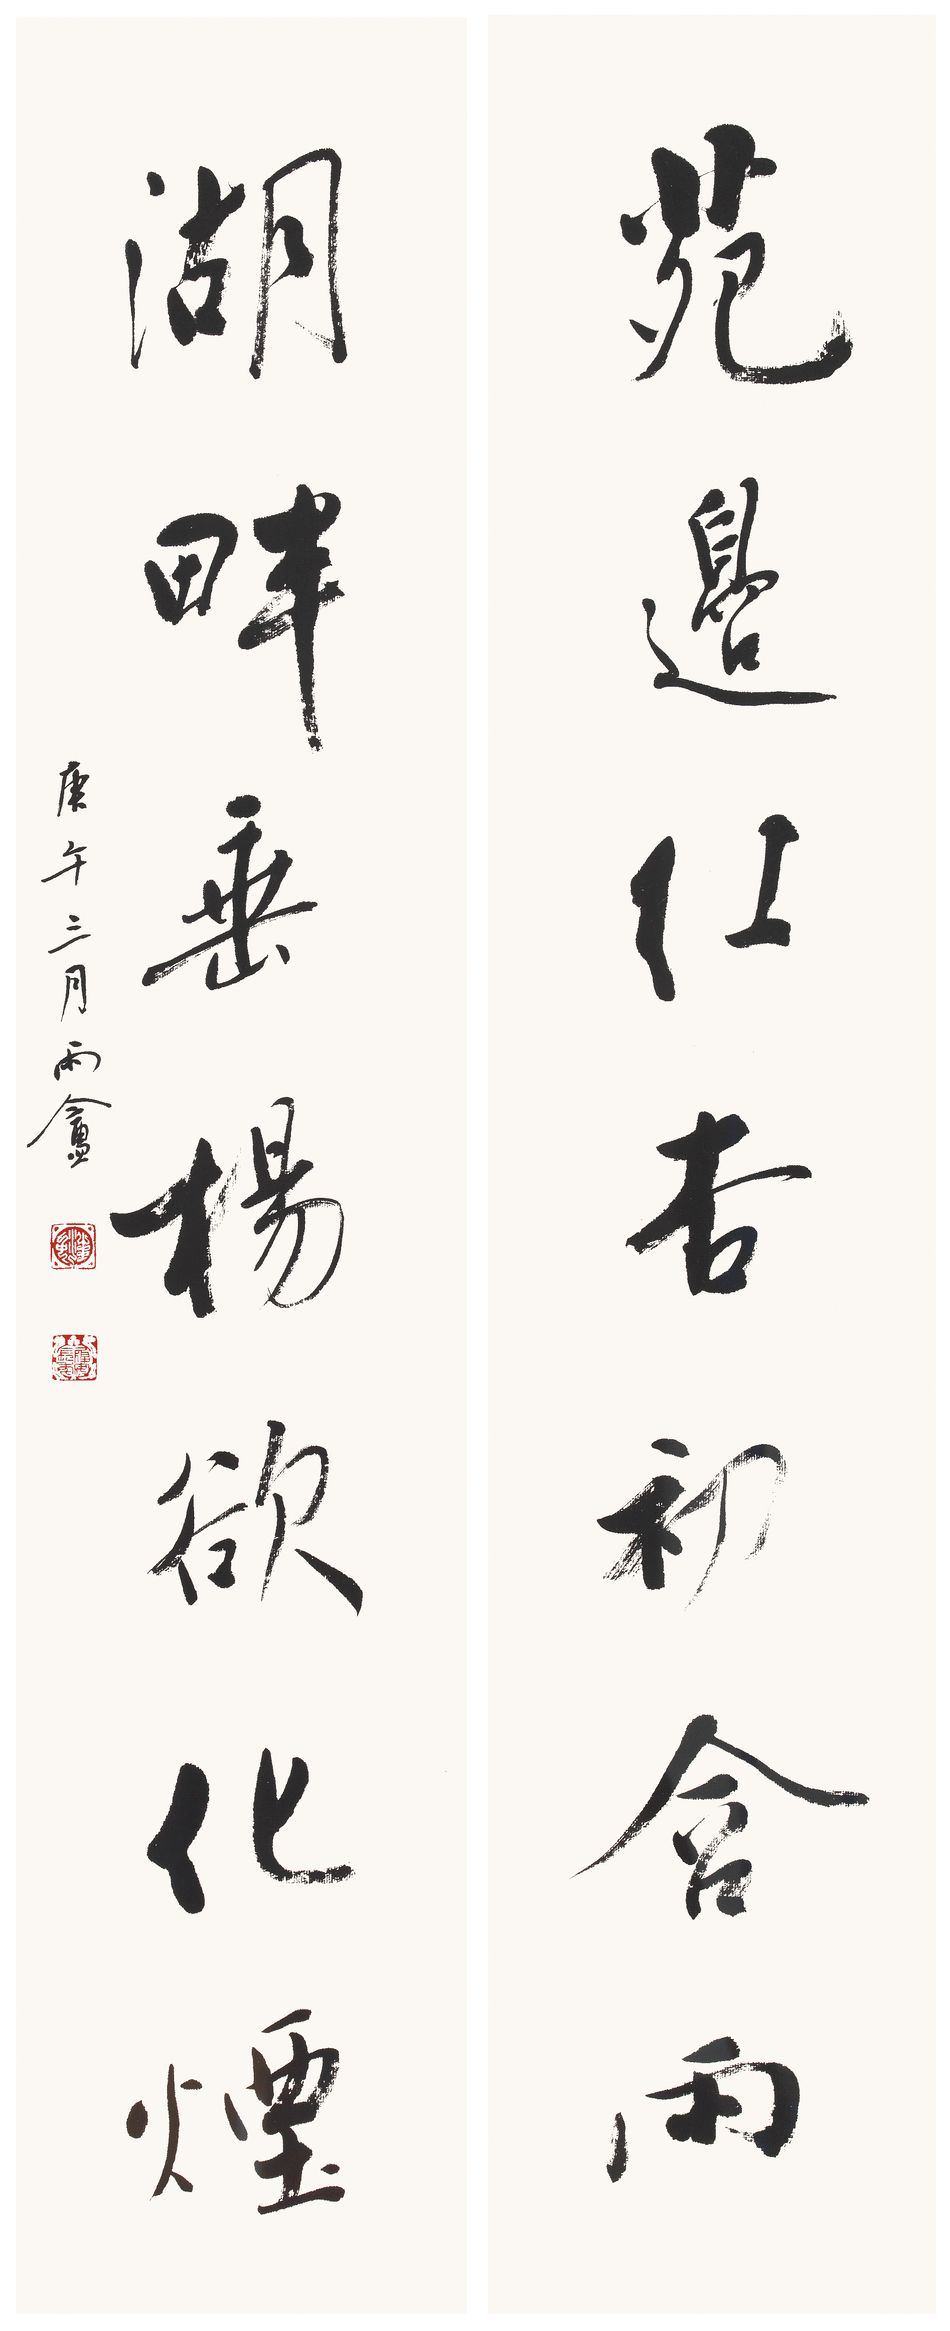 苑邊仕杏初含雨
湖畔垂楊欲化煙
庚午三月雨盦